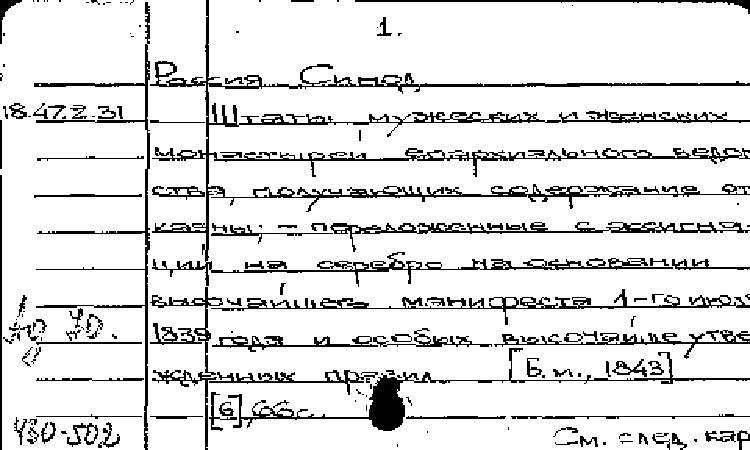 1.
Россия Синод
18.47.2.31 Штаты мужеских и женских
монастырей епархиального ведом
ства, получающих содержание от
казны, - переложенные с ассигна-
ции на серебро на основании
высочайшего манифеста 1-го июля
1839 года и особых высочайше утве
жденных правил. [Б.м., 1843]
[6], 66 с.
430-502
См. след. кар